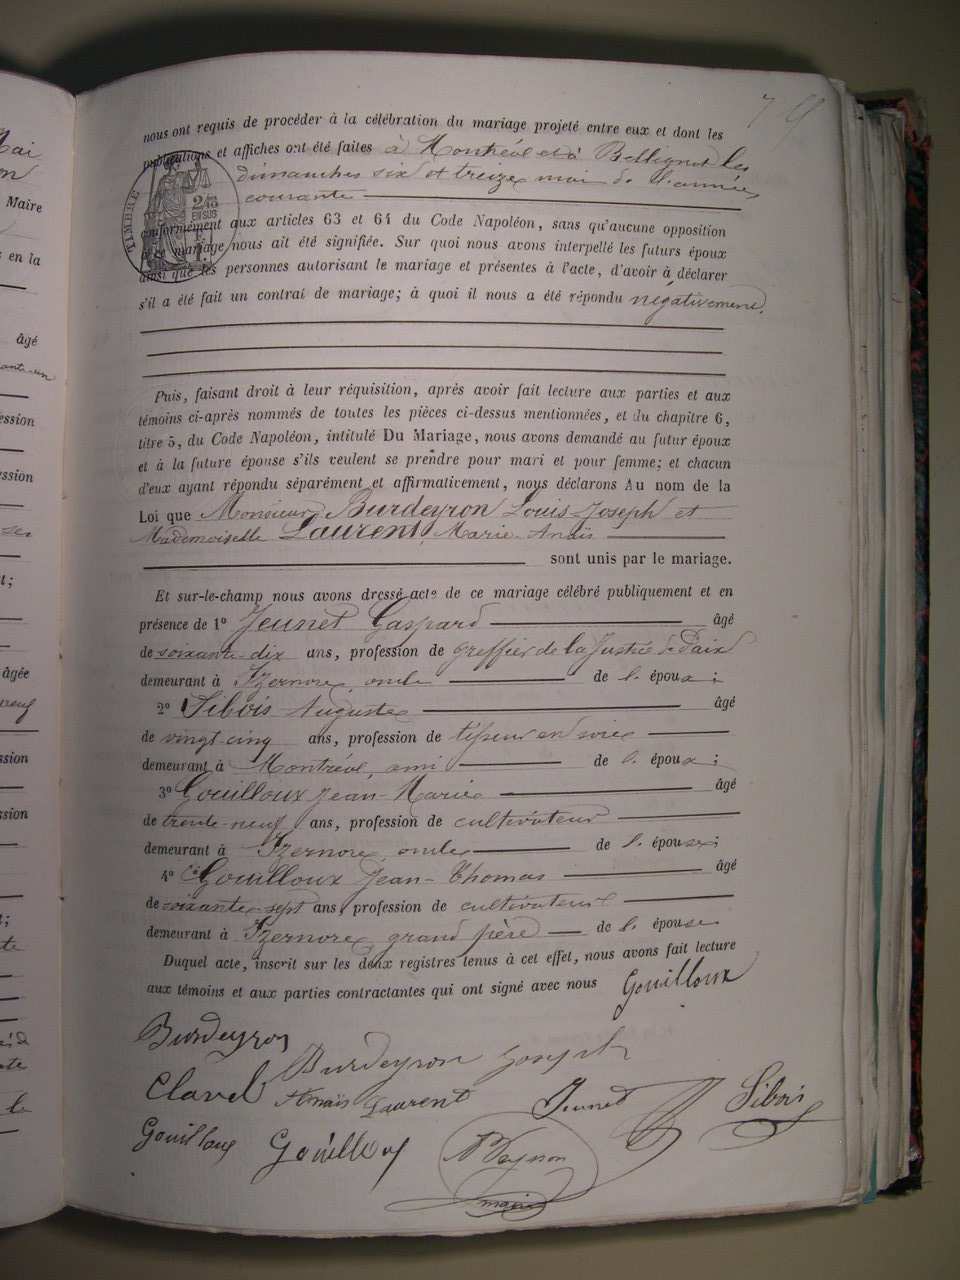 nous ont requis de procéder à la célébration du mariage projeté entre eux et dont les
publications et affiches ont été faites à Montréal et à Bellignat les
dimanches six et treize mai de l'année
courante
conformément aux articles 63 et 64 du Code Napoléon, sans qu'aucune opposition
à ce mariage nous ait été signifiée. Sur quoi nous avons interpellé les futurs époux
ainsi que les personnes autorisant le mariage et présentes à l'acte, d'avoir à déclarer
s'il a été fait un contrat de mariage; à quoi il nous a été répondu négativement.
TIMBRE
EN SUS
Puis, faisant droit à leur réquisition, après avoir fait lecture aux parties et aux
témoins ci-après nommés de toutes les pièces ci-dessus mentionnées, et du chapitre 6,
titre 5, du Code Napoléon, intitulé Du Mariage, nous avons demandé au futur époux
et à la future épouse s'ils veulent se prendre pour mari et pour femme; et chacun
d'eux ayant répondu séparément et affirmativement, nous déclarons Au nom de la
Loi que Monsieur Burdeyron Louis Joseph et
Mademoiselle Laurent, Marie Anaïs
sont unis par le mariage.
Et sur-le-champ nous avons dressé acte de ce mariage célébré publiquement et en
présence de 1º Jeunet Gaspard âgé
de soixante-dix ans, profession de greffier de la Justice de Paix
demeurant à Izernore, oncle de l. époux;
2º Sibois Auguste âgé
de vingt-cinq ans, profession de tisseur en soie
demeurant à Montréal, ami de l. époux;
3º Gouilloux Jean-Marie âgé
de trente-neuf ans, profession de cultivateur
demeurant à Izernore, oncle de l. épouse;
4º Gouilloux Jean-Thomas âgé
de soixante-sept ans, profession de cultivateur
demeurant à Izernore, grand père de l. épouse
Duquel acte, inscrit sur les deux registres tenus à cet effet, nous avons fait lecture
aux témoins et aux parties contractantes qui ont signé avec nous Gouilloux
Burdeyron
Burdeyron Joseph
Clavel Anaïs Laurent Jeunet Sibois
Gouilloux Gouilloux
maire